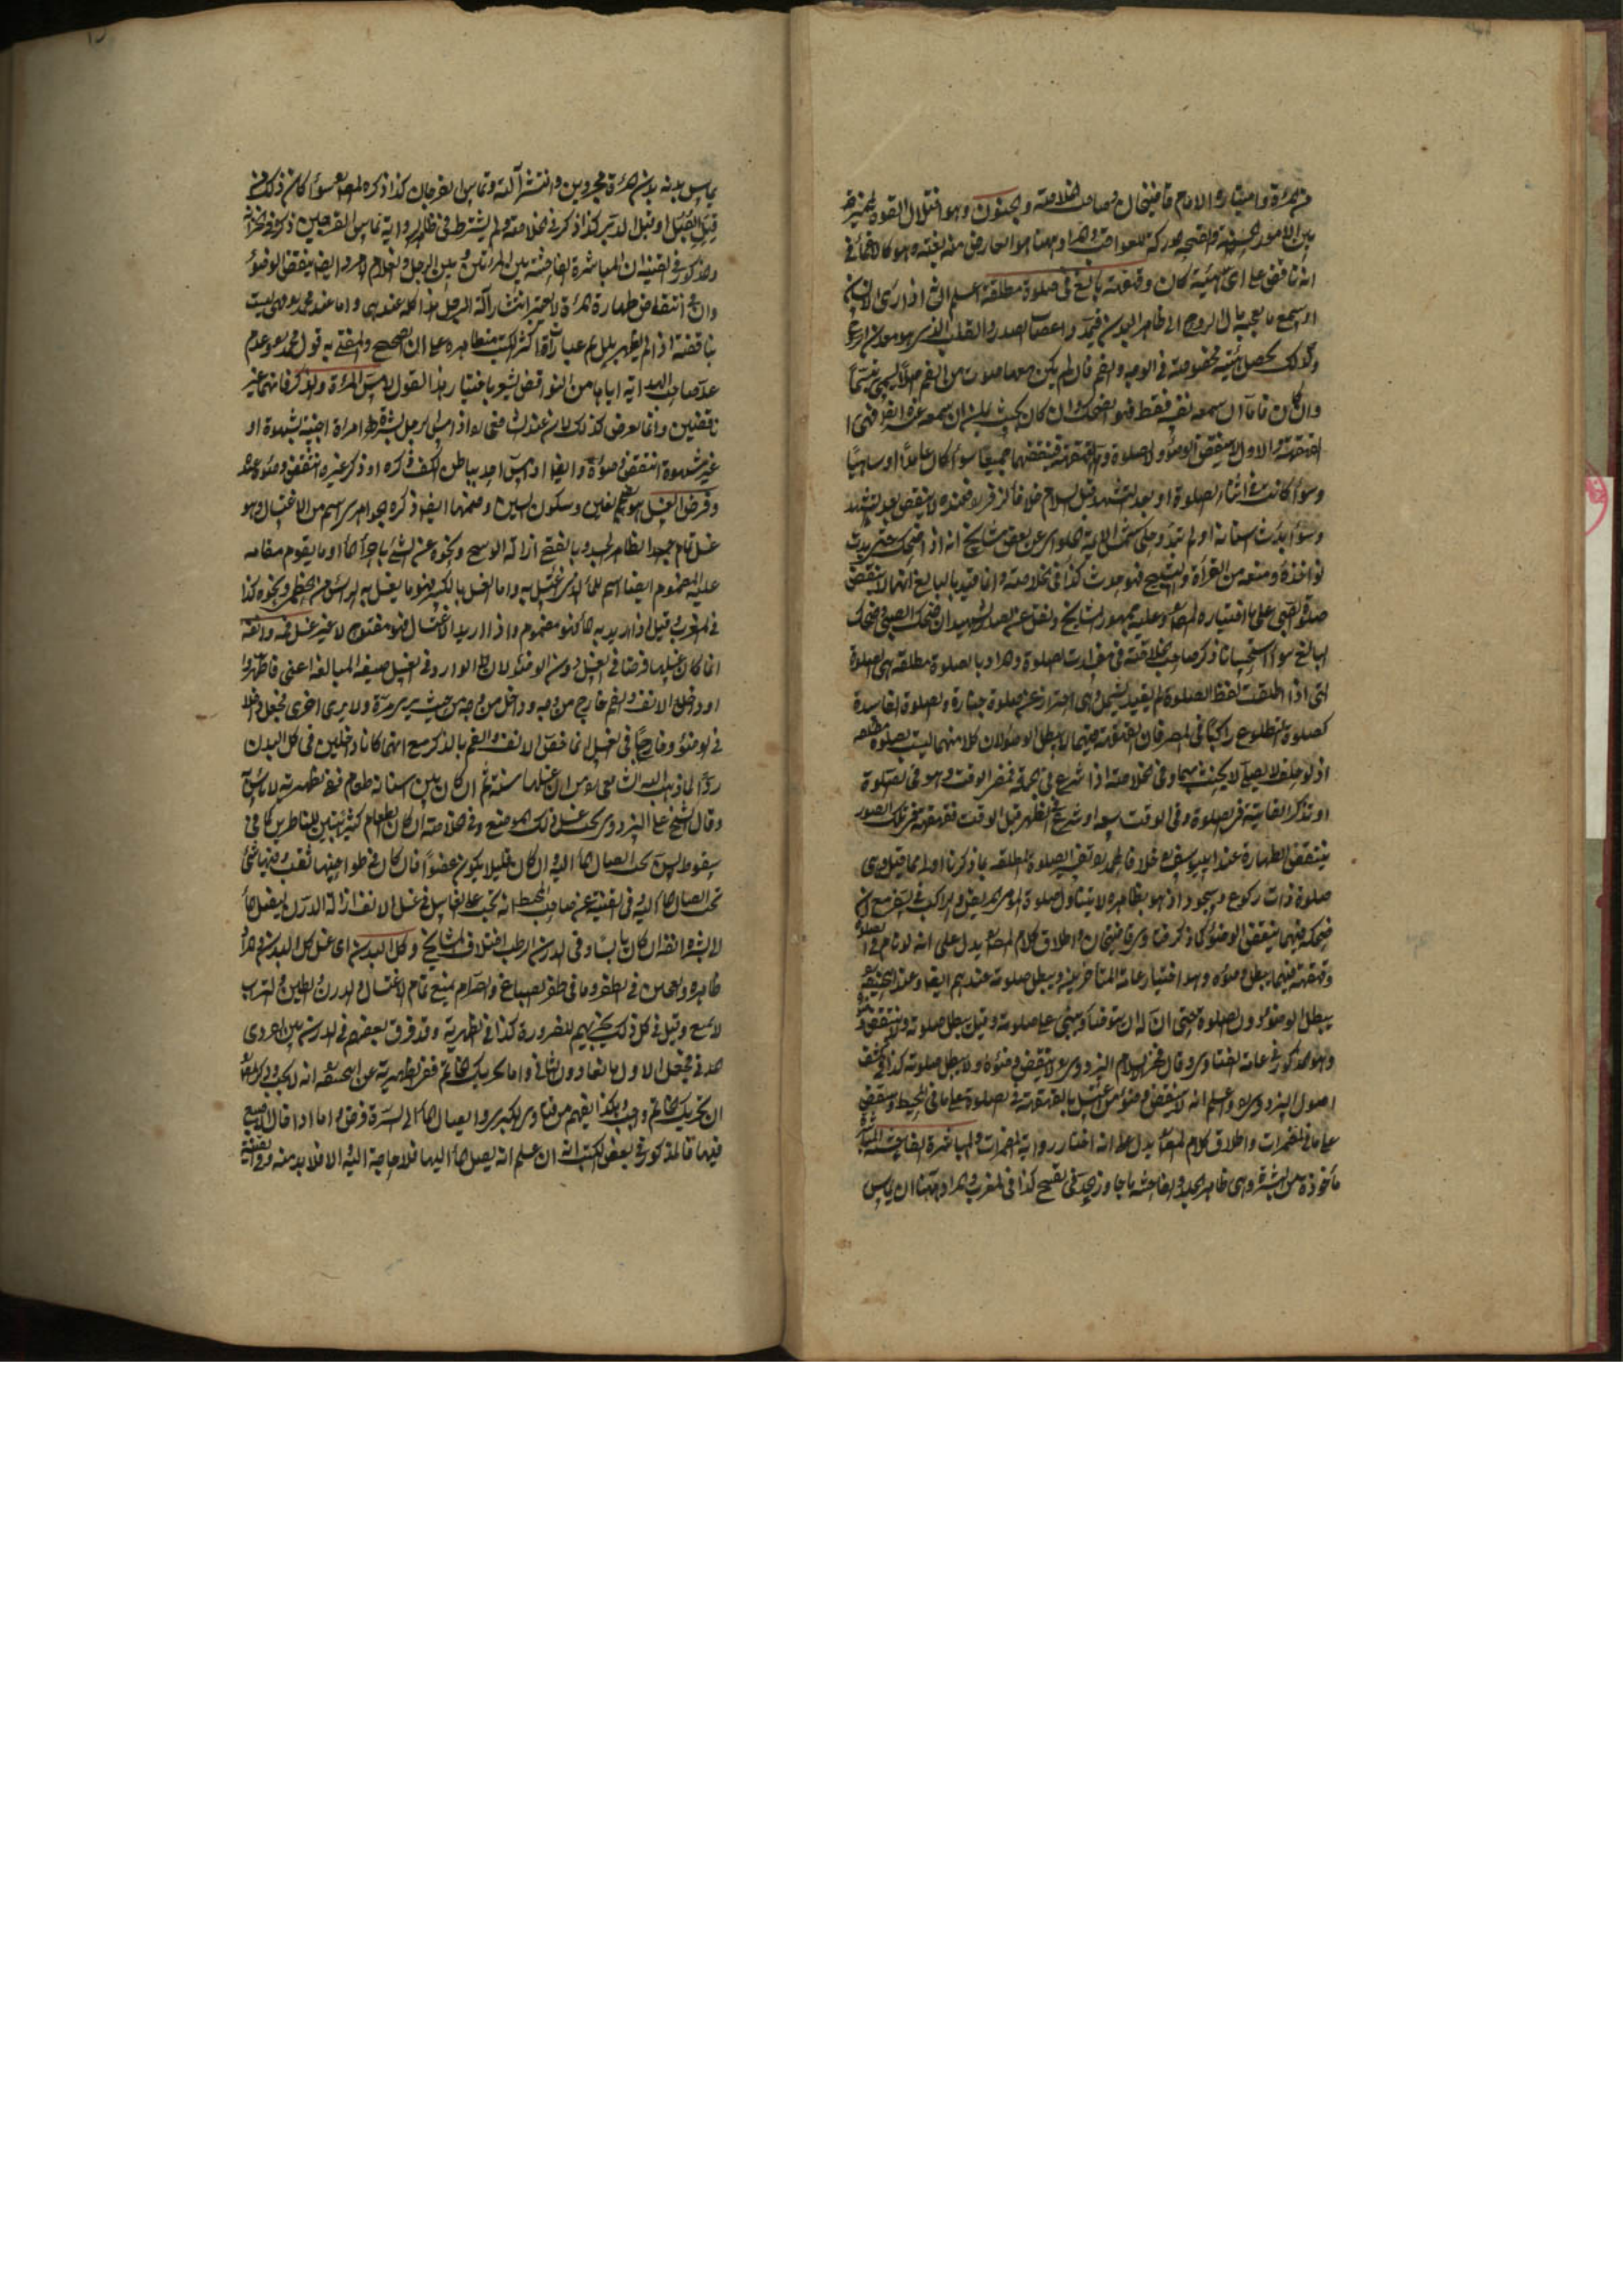 من المرة واختاره الامام قاضيخان وصاحب الخلاصة والجنون وهو اختلال القوة المميزة
بين الامور الحسنة والقبيحة المدركة للعواقب والمراد ههنا هو العارض منه بغتة وهو كالاغماء في
انه ناقض على اى هيئة كان وقهقهة بالغ في صلوة مطلقة اعلم ان اذا راى الانسان
او سمع ما يعجبه مال الروح الى ظاهر البدن فيمد اعصاب الصدر والقلب الذى هو معدن الروح
وكذلك يحصل هيئة مخصوصة في الوجه والفم فان لم يكن معها صوت من الفم اصلا يسمى تبسما
وان كان فاما ان سمعه نفسه فقط فهو الضحك وان كان بحيث يلزم ان سمعه غيره ايضا فهى
القهقهة والاول لا ينقض الوضوء ولا صلوة والقهقهة تنقضهما جميعا سواء كان عامدا او ساهيا
وسواء كانت في اثناء الصلوة او بعد التشهد قبل السلام خلافا لزفر فعنده لا ينقض بعد التشهد
وسواء بدت اسنانه او لم تبدو وحكى شمس الائمة الحلوانى عن بعض مشايخ انه اذا ضحك حتى بدت
نواجذه ومنعه من القراءة والتسبيح فهو حدث كذا في الخلاصة وانما قيد بالبالغ لانها لا ينقض
صلوة الصبى على ما اختياره المصنف وعليه جمهور المشايخ ونقل عن الصدر الشهيد ان ضحك الصبى وضحك
البالغ سواء استحسانا ذكر صاحب الخلاصة في مفسدات الصلوة والمراد بالصلوة مطلقة هى الصلوة
التى اذا اطلقت لفظ الصلوة لم يقيد يشمل وهى احتراز عن صلوة جنازة والصلوة الفاسدة
كصلوة الطلوع راكبا في المصر فان القهقهة فيهما لا يبطل الوضوء لان كلا منهما ليست بصلوة مطلقة
اذ لو حلف لا يصلى لا يحنث بهما وفي الخلاصة اذا شرع في الجمعة فخرج الوقت وهو في الصلوة
او تذكر الفائتة في الصلوة وفى الوقت سعة او شرع في الظهر قبل الوقت فقهقه في تلك الصور
ينتقض الطهارة عند ابى يوسف خلافا لمحمد تعريف الصلوة المطلقة بما ذكرنا اولى مما قيل هى
صلوة ذات ركوع وسجود اذ هو بظاهره لا يتناول صلوة المومى المريض والراكب في السفر مع ان
ضحك فيهما ينتقض الوضوء كما ذكر فتاوى قاضيخان واطلاق كلام المصنف يدل على انه لو نام في الصلوة
وقهقهة فيهما يبطل وضوءه وهو اختيار عامة المتاخرين ويبطل صلوته عندهم ايضا وعند ابى حنيفة
يبطل الوضوء دون الصلوة حتى ان له ان يتوضأ ويبنى على صلوته وقيل يبطل صلوته ولا ينتقض وضوءه
وهو المذكور في عامة الفتاوى وقال فخر الاسلام البزدوى لا ينتقض وضوءه ولا يبطل صلوته كذا في كشف
اصول البزدوى واعلم انه لا ينتقض وضوء من اغتسل بالقهقهة في الصلوة على ما في المحيط وينتقض
على ما في المضمرات واطلاق كلام المصنف يدل على انه اختار رواية المضمرات والمباشرة الفاحشة المباشرة
ماخوذة من البشرة وهى ظاهر الجلد والفاحشة ما جاوز الحد في القبح كذا في المغرب والمراد ههنا ان يماس
يماس بدنه بدن المرأة مجردين وانتشر آلته وتماس الفرجان كذا ذكره المصنف سواء كان ذلك من
قبل القبل او قبل الدبر كذا ذكر في الخلاصة ولم يشترط في ظاهر الرواية تماس الفرجين ذكره في الخزانة
ومذكور في القنية ان المباشرة الفاحشة بين المرأتين وبين الرجل والغلام الامرد ايضا ينقض الوضوء
وان في انتقاض طهارة المرأة لا يعتبر انتشار آلة الرجل هذا كله عندهما واما عند محمد فهى ليست
بناقضة اذا لم يظهر بلل ثم عبارات اكثر الكتب متظاهرة على ان الصحيح والمفتى به قول محمد وعدم
عد صاحب الهداية اياها من النواقض يشعر باختيار هذا القول لا مس المرأة والذكر فانهما غير
ناقضين وانما يعرض كذلك لان عند الشافعى لو اذا مس الرجل بشرة امرأة اجنبية بشهوة او
غير شهوة انتقض وضوءه وايضا اذا مس احد بباطن الكف ذكره او ذكر غيره انتقض وضوءه عنده
وفرض الغسل هو بضم الغين وسكون السين وضمهما ايضا ذكره الجوهرى اسم من الاغتسال وهو
غسل تمام جميع الظاهر الجسد وبالفتح ازالة الوسخ ونحوه عن الشئ باجراء الماء او ما يقوم مقامه
عليه المضموم ايضا اسم للماء الذى يغتسل به واما الغسل بالكسر فهو ما يغسل به الرأس من الخطمى ونحوه كذا
في المغرب وقيل اذا اريد به الماء فهو مضموم واذا اريد الاغتسال فهو مفتوح لا غير غسل فمه وانفه
انما كان غسلهما فرضا في الغسل دون الوضوء لان الوارد في الغسل صيغة المبالغة اعنى فاطهروا
او داخل الانف والفم خارج من وجه وداخل من وجه من حيث يرى مرة ولا يرى اخرى فجعل داخلا
في الوضوء وخارجا في الغسل انما خص الانف والفم بالذكر مع انهما كانا داخلين في كل البدن
ردا لما ذهب اليه الشافعى من ان غسلهما سنة ثم ان كان بين اسنانه طعام فعن ظهيرية لا بأس
وقال الشيخ على البزدوى يجب غسل ذلك الموضع وفي الخلاصة ان كان الطعام كثيرا يتبين للناظرين كما في
سقوط السن يجب ايصال الماء اليه وان كان قليلا يكون عفوا فان كان في ضواحيها ثقب وفيها شئ
يجب ايصال الماء اليه وفي القنية عن صاحب المحيط انه يجب على الغاسل في غسل الانف ازالة الدرن ليصل الماء
لا بشرة انفه ان كان يابسا وفي الدرن الرطب اختلاف المشايخ وكل البدن اى غسل كل البدن والمراد
ظاهره والعجين في الظفر وما في ظفر الصباغ والصرام يمنع تمام الاغتسال والدرن والطين والتراب
لا يمنع وقيل في كل ذلك يجزيهم للضرورة كذا في الظهيرية وقد فرق بعضهم في الدرن بين القروى
المدنى فجعل الاول مانعا دون الثانى واما تحريك الخاتم ففي الظهيرية عن ابى حنيفة انه لا يجب
ان تحريك الخاتم واجب وهكذا يفهم من فتاوى الكبرى وايصال الماء الى السرة فرض واما ادخال الاصبع
فيها فالمذكور في بعض الكتب انه ان علم انه يصل الماء اليها فلا حاجة اليه والا فلا بد منه وفي القنية